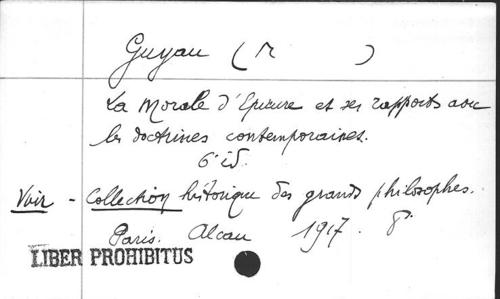 Guyau (M )
La Morale d'Epicure et ses rapports avec
les doctrines contemporaines.
6e éd.
Voir - Collection historique des grands philosophes.
Paris. Alcan 1917. 8°
LIBER PROHIBITUS